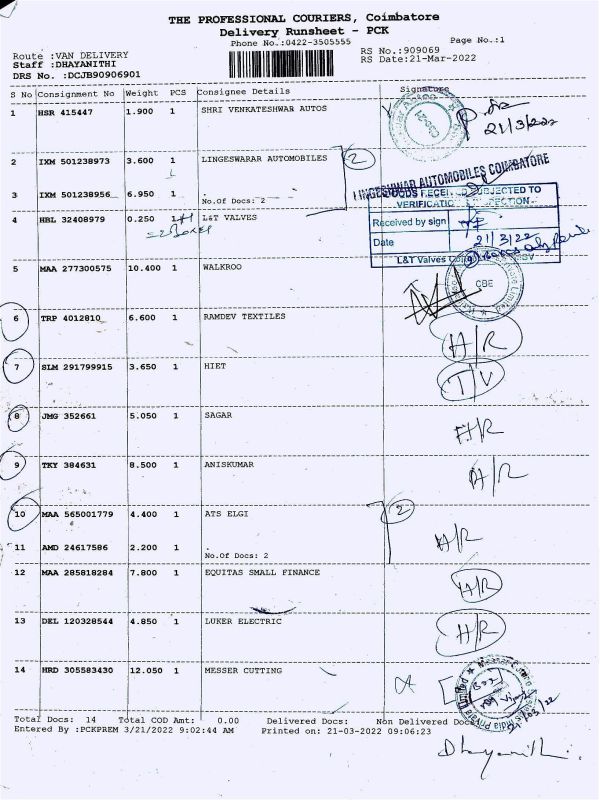 THE PROFESSIONAL COURIERS, Coimbatore
Delivery Runsheet - PCK
Phone No.:0422-3505555
Page No.:1
Route :VAN DELIVERY
Staff :DHAYANITHI
DRS No. :DCJB90906901
RS No.:909069
RS Date:21-Mar-2022
S No Consignment No Weight PCS Consignee Details Signature
1 HSR 415447 1.900 1 SHRI VENKATESHWAR AUTOS
21/3/22
2 IXM 501238973 3.600 1 LINGESWARAR AUTOMOBILES 2
LINGESHWAR AUTOMOBILES COIMBATORE
3 IXM 501238956 6.950 1
No.Of Docs: 2
GOODS RECEIVED SUBJECTED TO
Received by sign
4 HBL 32408979 0.250 L&T VALVES
Date 21/3/22
L&T Valves
5 MAA 277300575 10.400 1 WALKROO
CBE
6 TRP 4012810 6.600 1 RAMDEV TEXTILES
A/R
7 SLM 291799915 3.650 1 HIET
T/V
8 JMG 352661 5.050 1 SAGAR
A/R
9 TKY 384631 8.500 1 ANISKUMAR
A/R
10 MAA 565001779 4.400 1 ATS ELGI 2
11 AMD 24617586 2.200 1
A/R
No.Of Docs: 2
12 MAA 285818284 7.800 1 EQUITAS SMALL FINANCE
A/R
13 DEL 120328544 4.850 1 LUKER ELECTRIC
A/R
14 HRD 305583430 12.050 1 MESSER CUTTING
Total Docs: 14 Total COD Amt: 0.00 Delivered Docs: Non Delivered Docs
Entered By :PCKPREM 3/21/2022 9:02:44 AM Printed on: 21-03-2022 09:06:23
Dhayanithi.